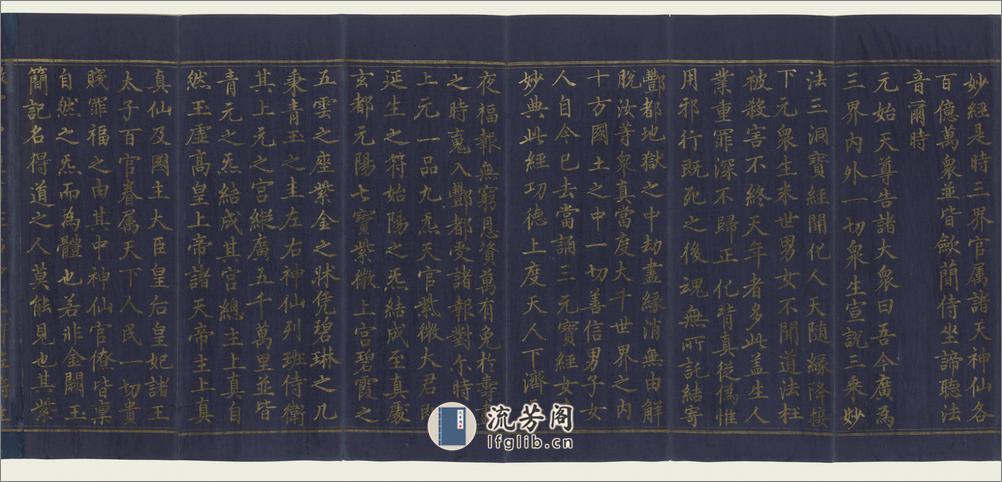 妙經是時三界官屬諸天神仙各
百億萬衆並皆斂簡侍坐諦聽法
音爾時
元始天尊告諸大衆曰吾今廣為
三界內外一切衆生宣說三乘妙
法三洞寶經開化人天隨緣降接
下元衆生來世男女不聞道法枉
被殺害不終天年者多此蓋生人
業重罪深不歸正化背真從偽惟
用邪行既死之後魂無所記結寄
酆都地獄之中劫盡緣消無由解
脫汝等衆真當度大千世界之內
十方國土之中一切善信男子女
人自今已去當誦三元寶經女
妙典此經功德上度天人下濟
夜福報無窮息資萬有免於壽
之時䰟入酆都受諸報對尔時
上元一品九炁天官紫微大君即
延生之符始陽之炁結成至真處
玄都元陽七寶紫微上宮碧霞之
五雲之座紫金之牀凭碧琳之几
秉青玉之圭左右神仙列班侍衛
其上元之宮縱廣五千萬里並皆
青元之炁結成其宮總主上真自
然玉虛高皇上帝諸天帝主上真
真仙及國主大臣皇后皇妃諸王
太子百官眷屬天下人民一切貴
賤罪福之由其中神仙官僚皆稟
自然之炁而為體也若非金闕玉
簡記名得道之人莫能見也其紫
流芳阁
lfglib.cn